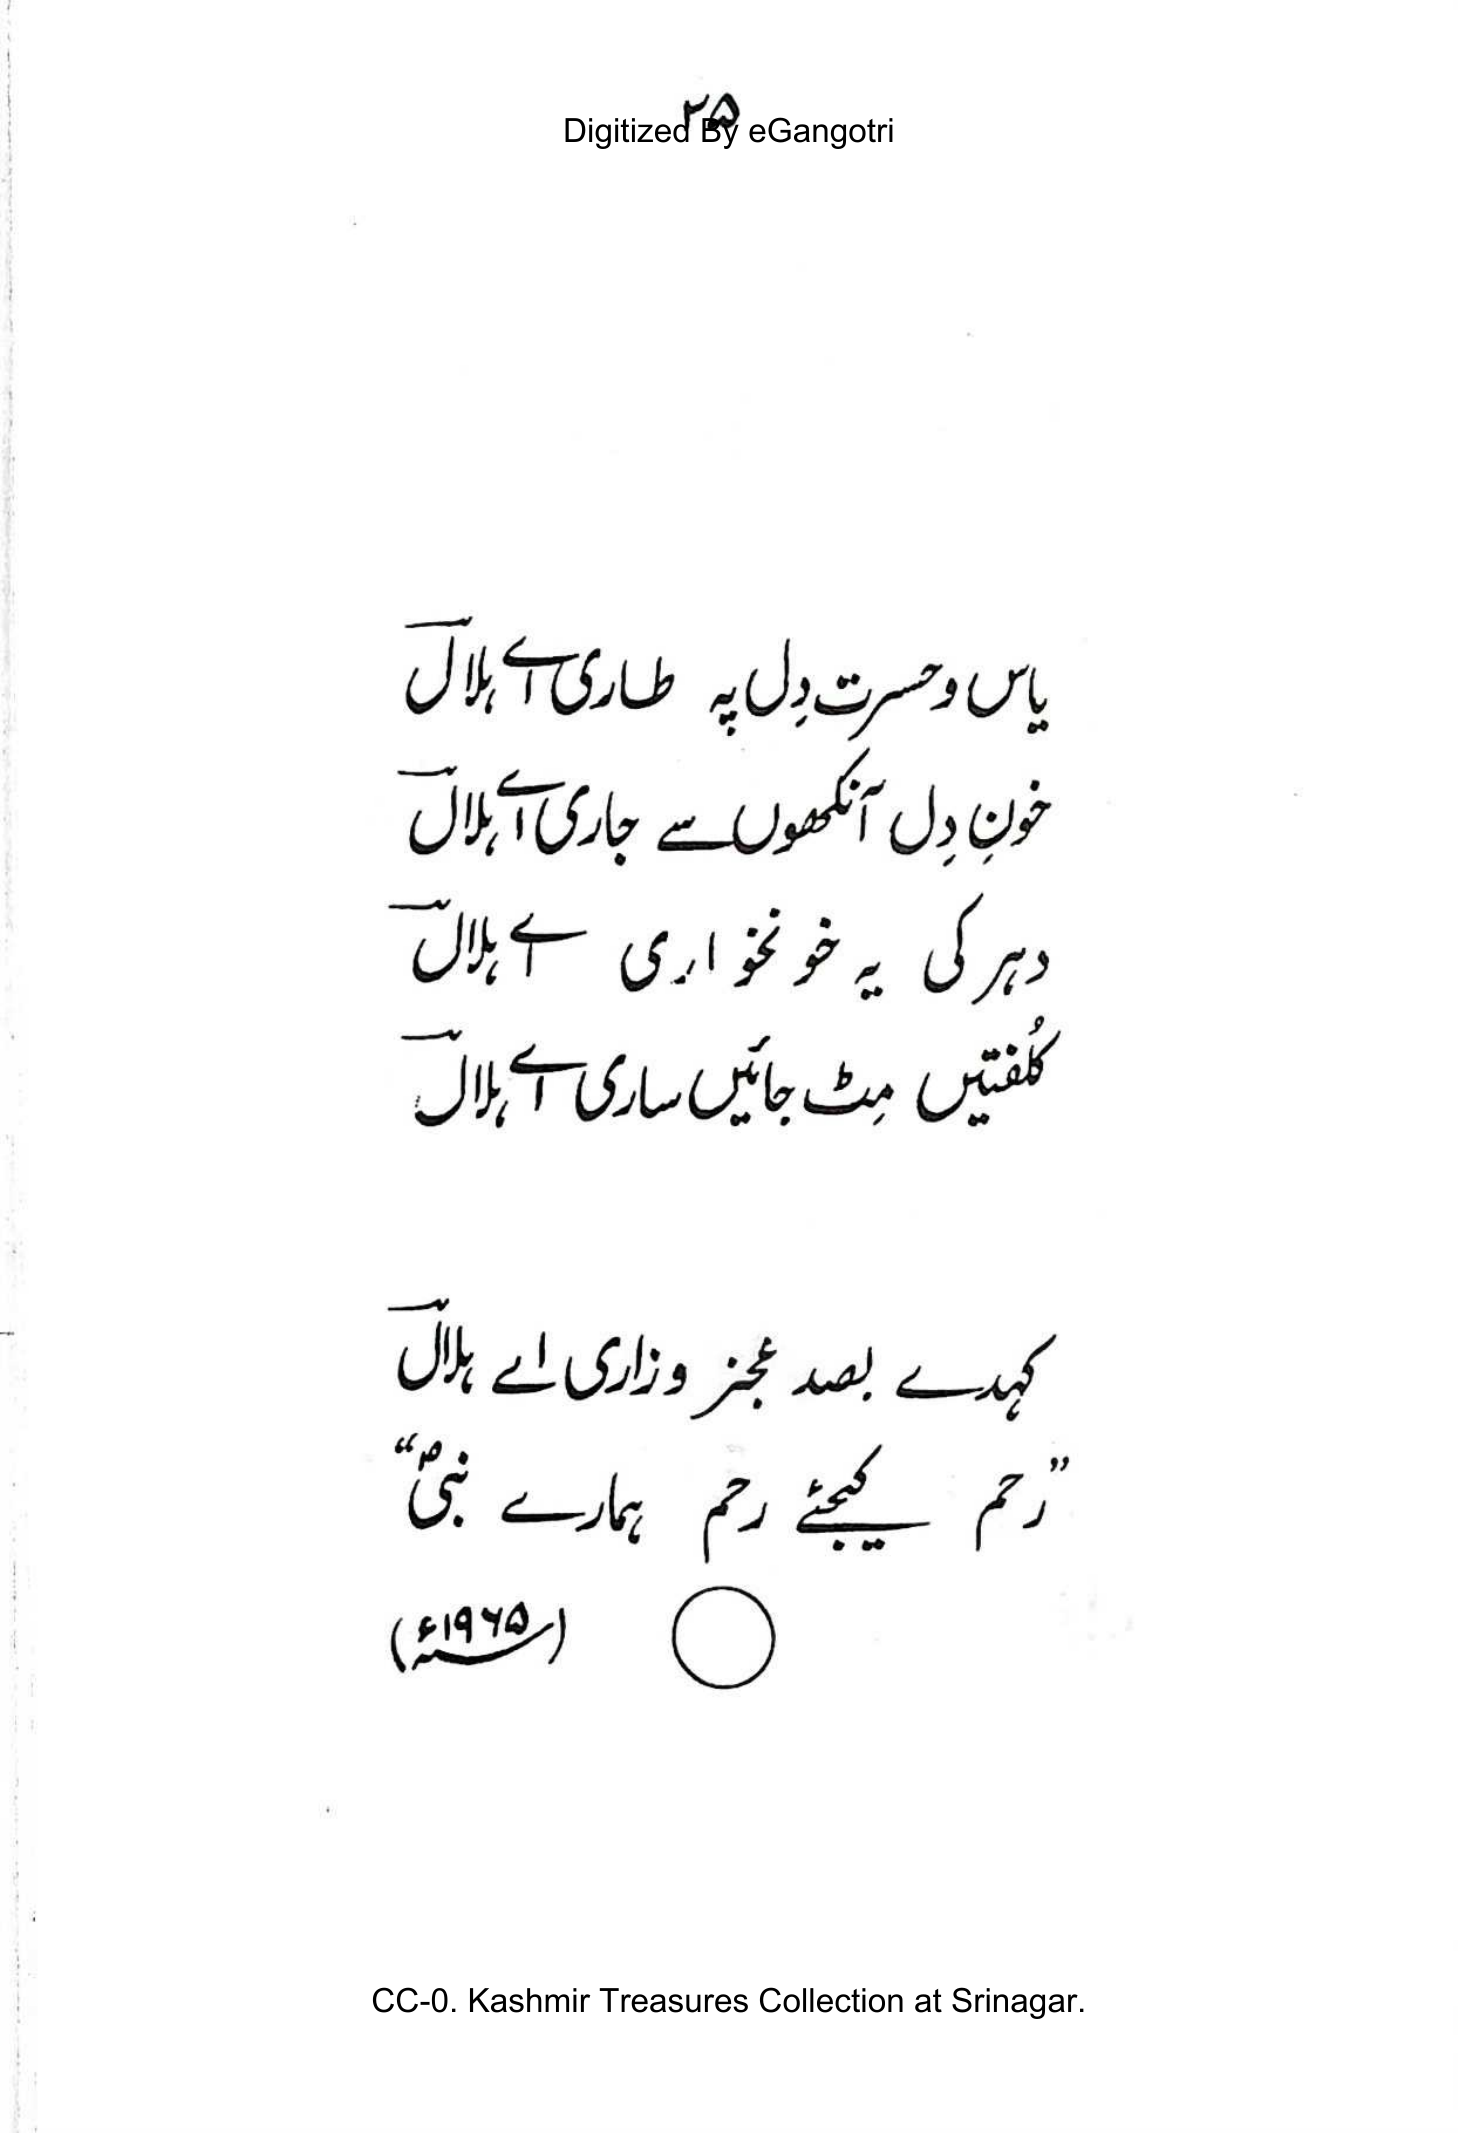 ۲۵
Digitized By eGangotri
یاس و حسرت دِل پہ طاری اے ہلالؔ
خونِ دِل آنکھوں سے جاری اے ہلالؔ
دہر کی یہ خونخواری اے ہلالؔ
کُلفتیں مِٹ جائیں ساری اے ہلالؔ
کہدے بصد عجز و زاری اے ہلالؔ
”رحم کیجئے رحم ہمارے نبیؐ“
(۱۹۶۵ء)
CC-0. Kashmir Treasures Collection at Srinagar.